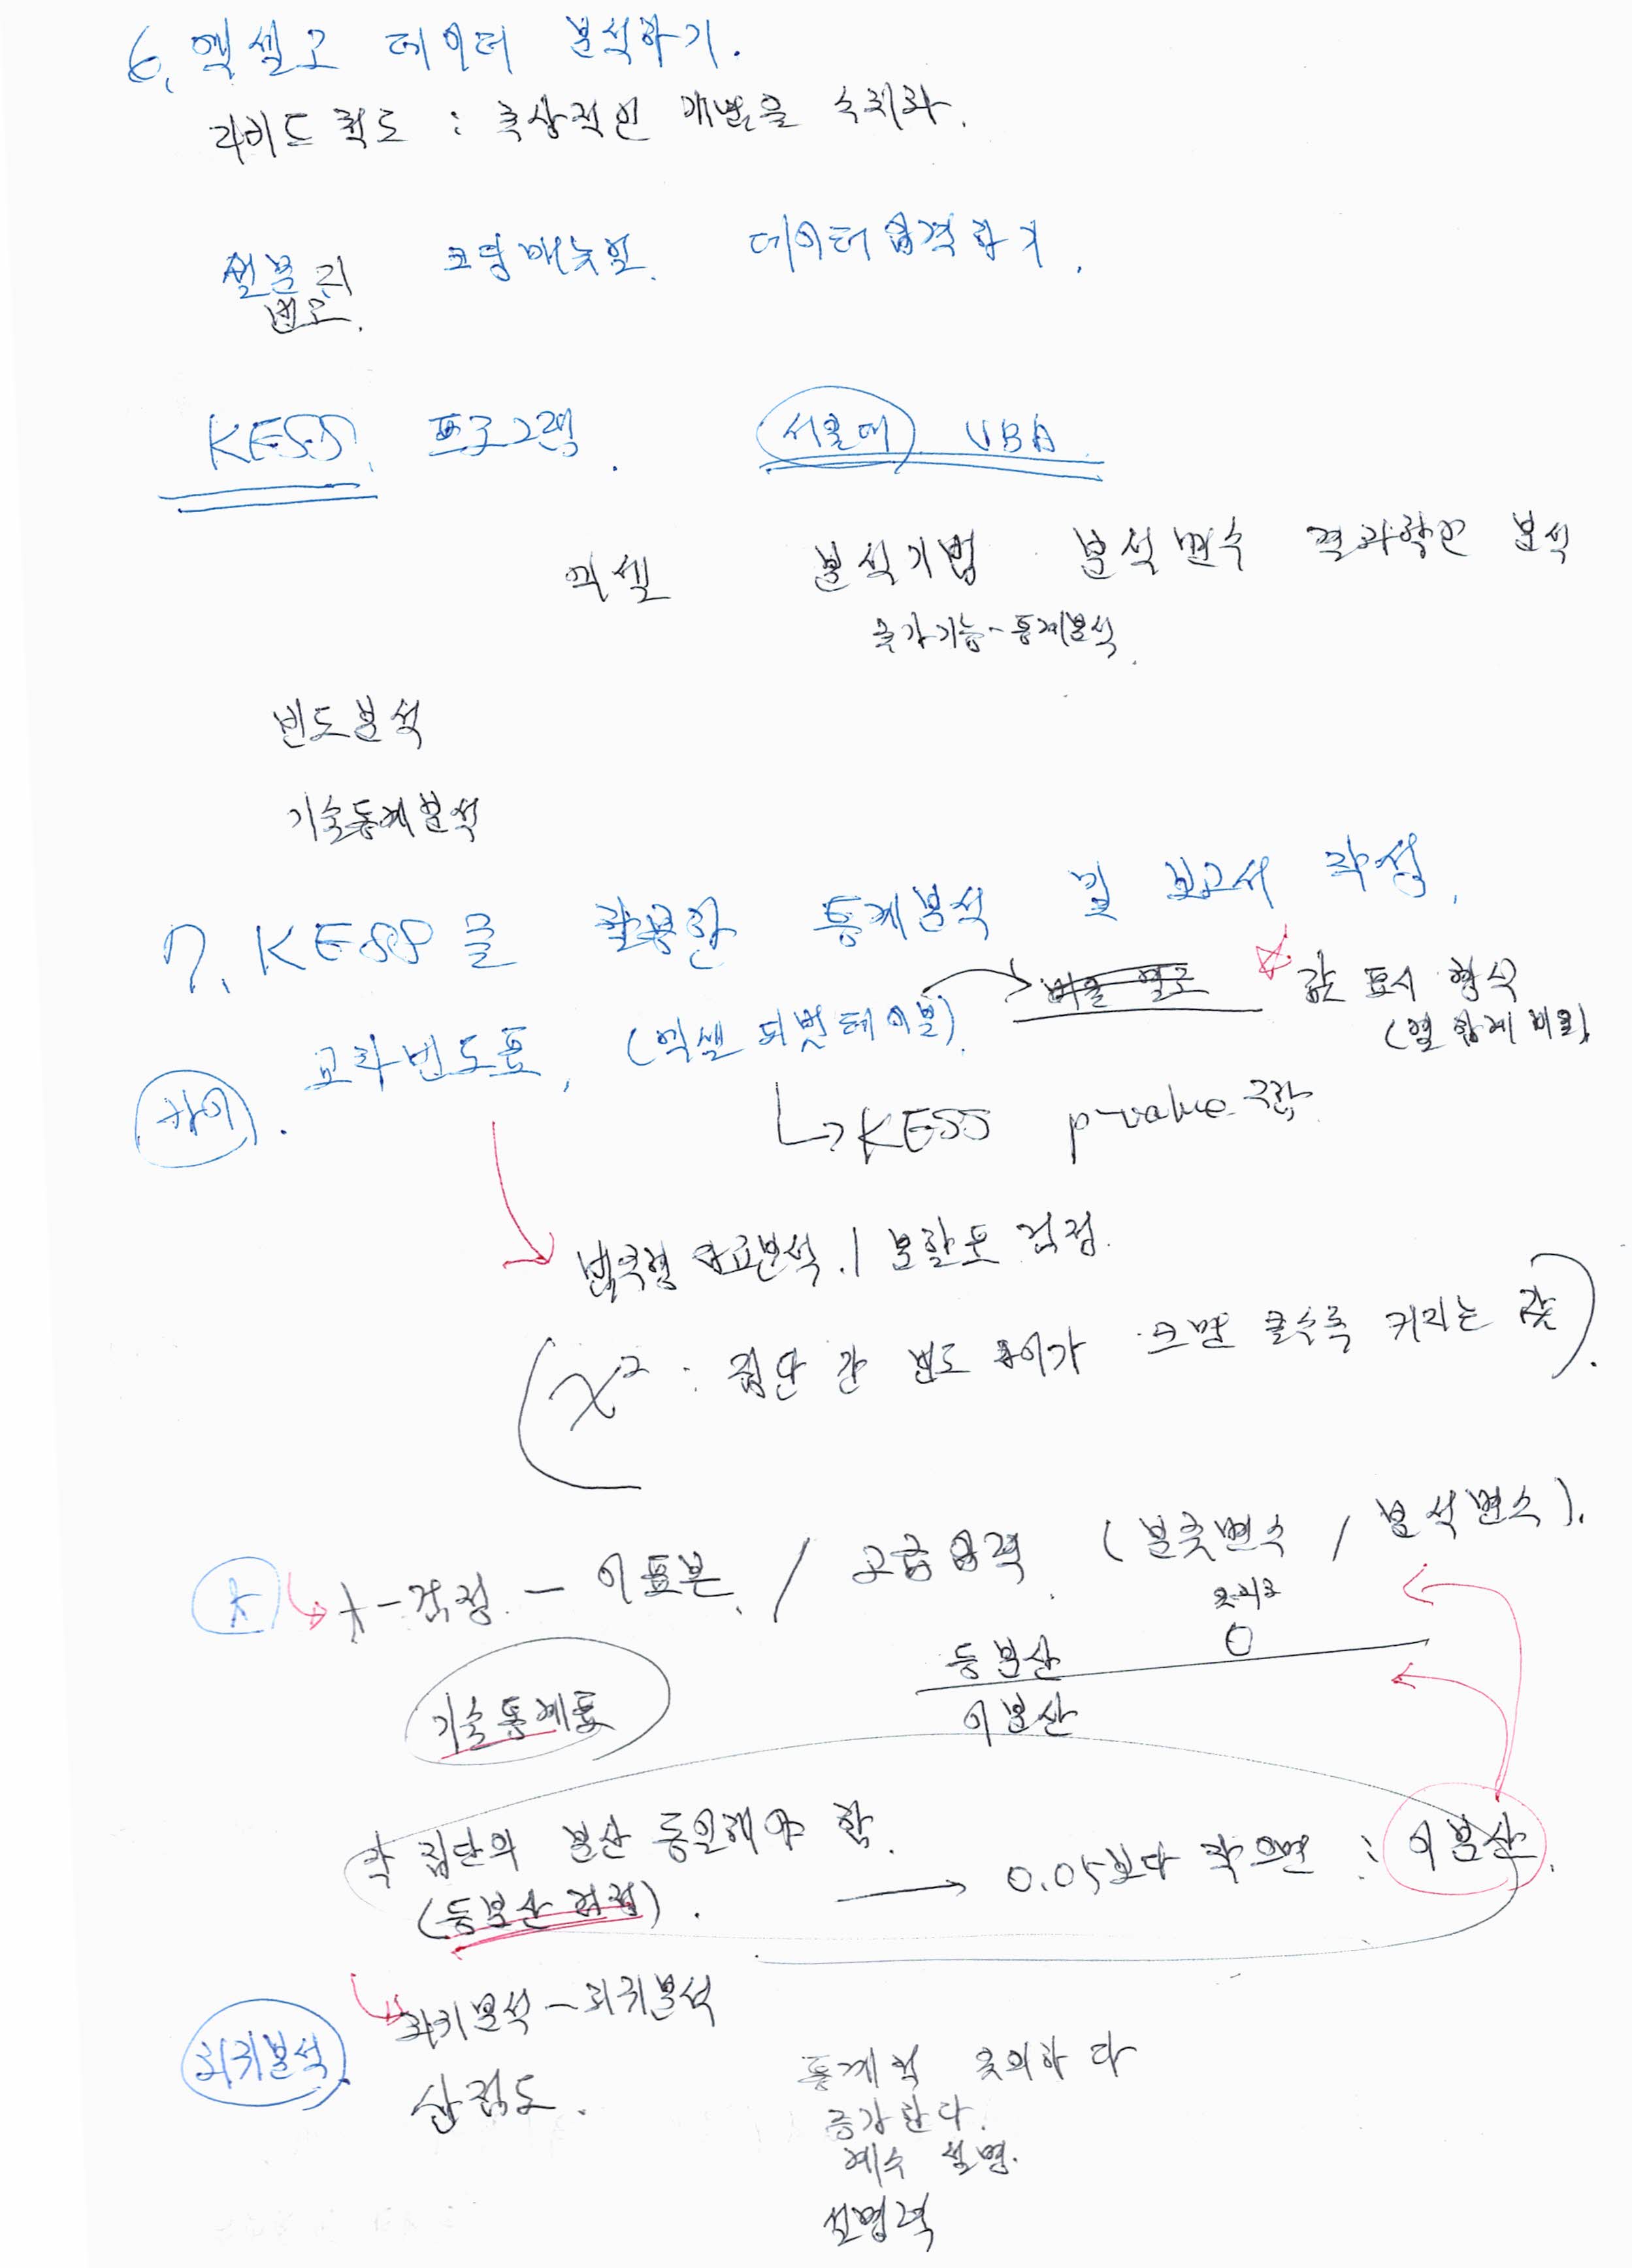 6. 엑셀로 데이터 분석하기.
리비드 척도 : 추상적인 개념을 수치화.
설문지 코딩매뉴얼. 데이터입력하기.
번호.
KESS. 프로그램. 서울대 VBA
엑셀 분석기법 분석변수 결과확인 분석
추가기능-통계분석.
빈도분석
기술통계분석
7. KESS를 활용한 통계분석 및 보고서 작성.
값 표시 형식
교차빈도표, (엑셀 피벗테이블). (열 합계 비율)
카이.
↳KESS p-value 구함
범주형 자료분석. / 분할표 검정.
(χ² : 집단 간 빈도 차이가 크면 클수록 커지는 값).
t t-검정. - 이표본. / 고급입력 (분류변수 / 분석변수).
등분산 0
이분산
기술통계표
각 집단의 분산 동일해야 함.
(등분산 검정). → 0.05보다 작으면 : 이분산.
회귀분석. 회귀분석-회귀분석
산점도.
통계적 유의하다
증가한다.
계수 설명.
설명력